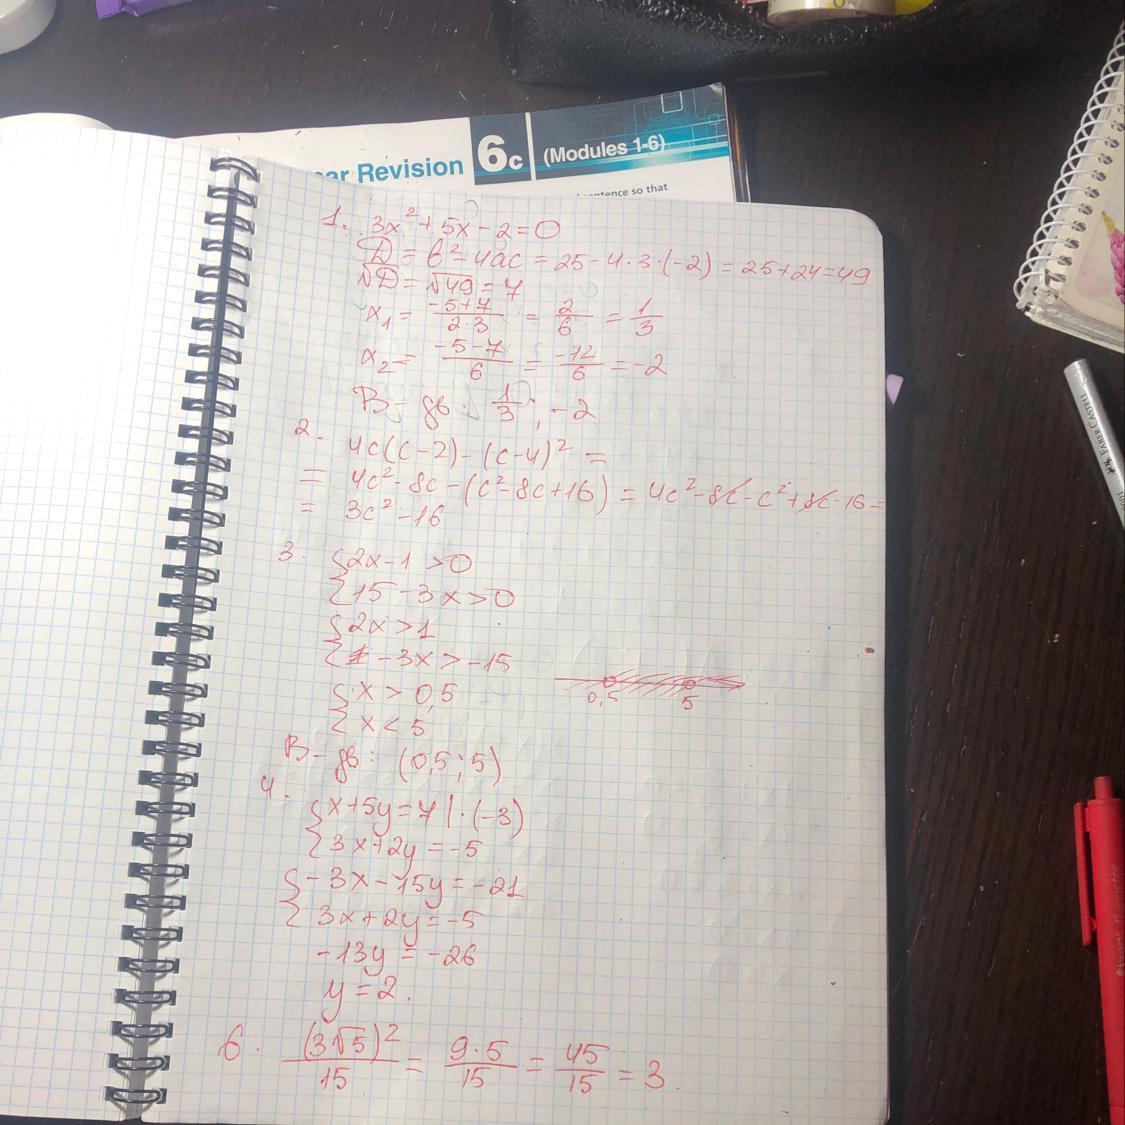 ar Revision 6c (Modules 1-6)
sentence so that
1. 3x² + 5x - 2 = 0
D = b² - 4ac = 25 - 4·3·(-2) = 25+24=49
√D = √49 = 7
x₁ = (-5+7)/(2·3) = 2/6 = 1/3
x₂ = (-5-7)/6 = -12/6 = -2
В-дь: 1/3; -2
2. 4c(c-2) - (c-4)² =
= 4c² - 8c - (c² - 8c + 16) = 4c² - 8c - c² + 8c - 16 =
= 3c² - 16
3. {2x-1 >0
{15-3x>0
{2x>1
{-3x > -15
{x > 0,5
{x < 5
0,5 5
В-дь: (0,5; 5)
4. {x+5y=7 | ·(-3)
{3x+2y=-5
{-3x-15y=-21
{3x+2y=-5
-13y = -26
y = 2.
6. (3√5)²/15 = 9·5/15 = 45/15 = 3.
FABER-CASTELL